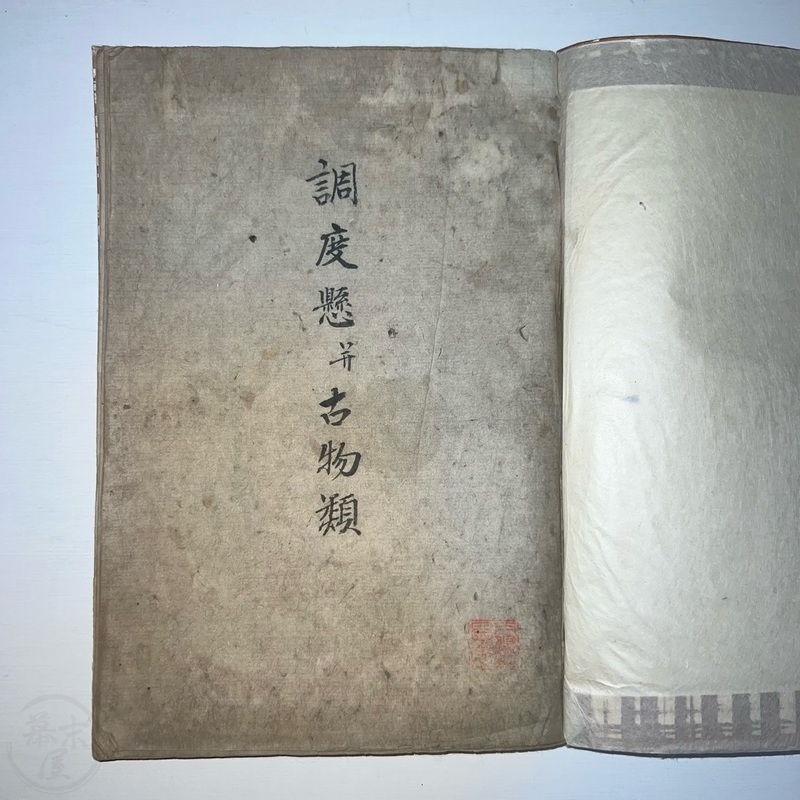 調度懸并古物類
幕末屋